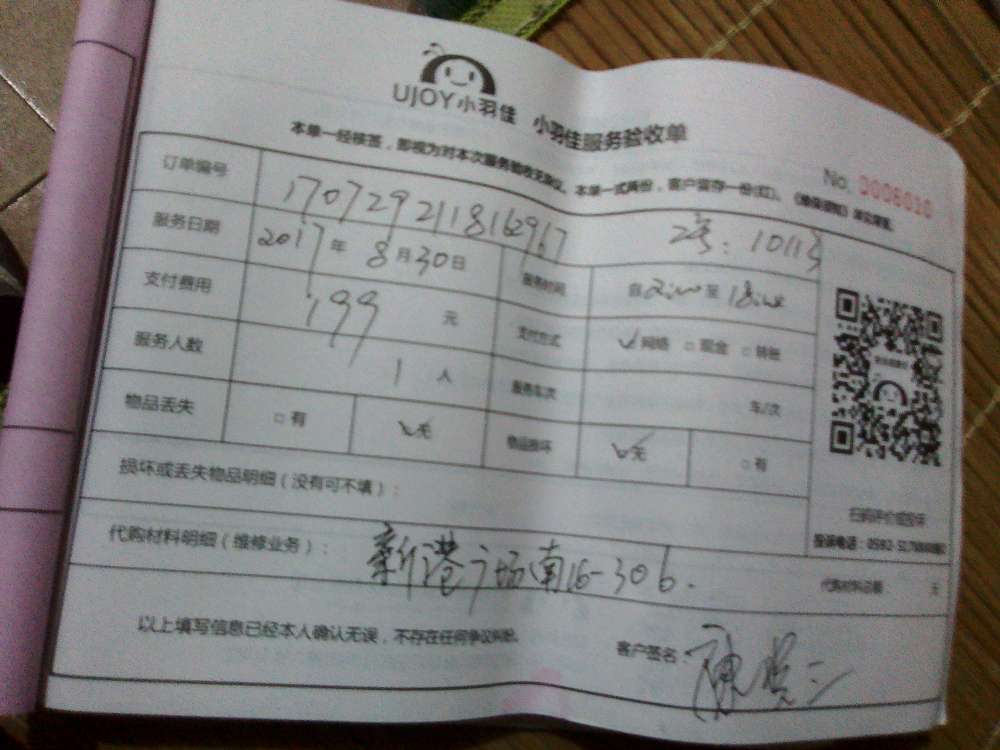 UJOY小羽佳 小羽佳服务验收单
本单一经核签，即视为对本次服务验收无异议。本单一式两份，客户留存一份(红)。
No. 0006010
订单编号 1707292118162967 工号：10113
服务日期 2017年8月30日 服务时间 自 至
支付费用 199 元 支付方式 ✓网络 □现金 □转账
服务人数 1 人 服务车次 车/次
物品丢失 □有 ✓无 物品损坏 ✓无 □有
损坏或丢失物品明细（没有可不填）：
代购材料明细（维修业务）： 新港广场南16-306.
代购材料总额： 元
以上填写信息已经本人确认无误，不存在任何争议纠纷。
客户签名：